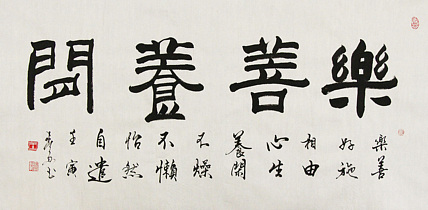 樂善養閒
樂善
好施
相由
心生
養閑
不燥
不懶
怡然
自遣
壬寅
書